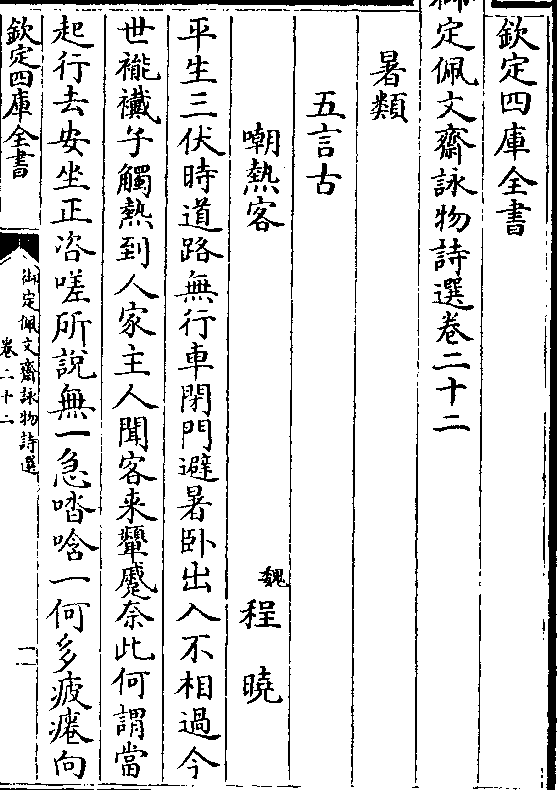 欽定四庫全書
御定佩文齋詠物詩選卷二十二
暑類
五言古
嘲熱客
魏程曉
平生三伏時道路無行車閉門避暑卧出入不相過今
世褦襶子觸熱到人家主人聞客來顰蹙奈此何謂當
起行去安坐正咨嗟所說無一急喒唅一何多疲瘘向
欽定四庫全書
御定佩文齋詠物詩選
卷二十二
一